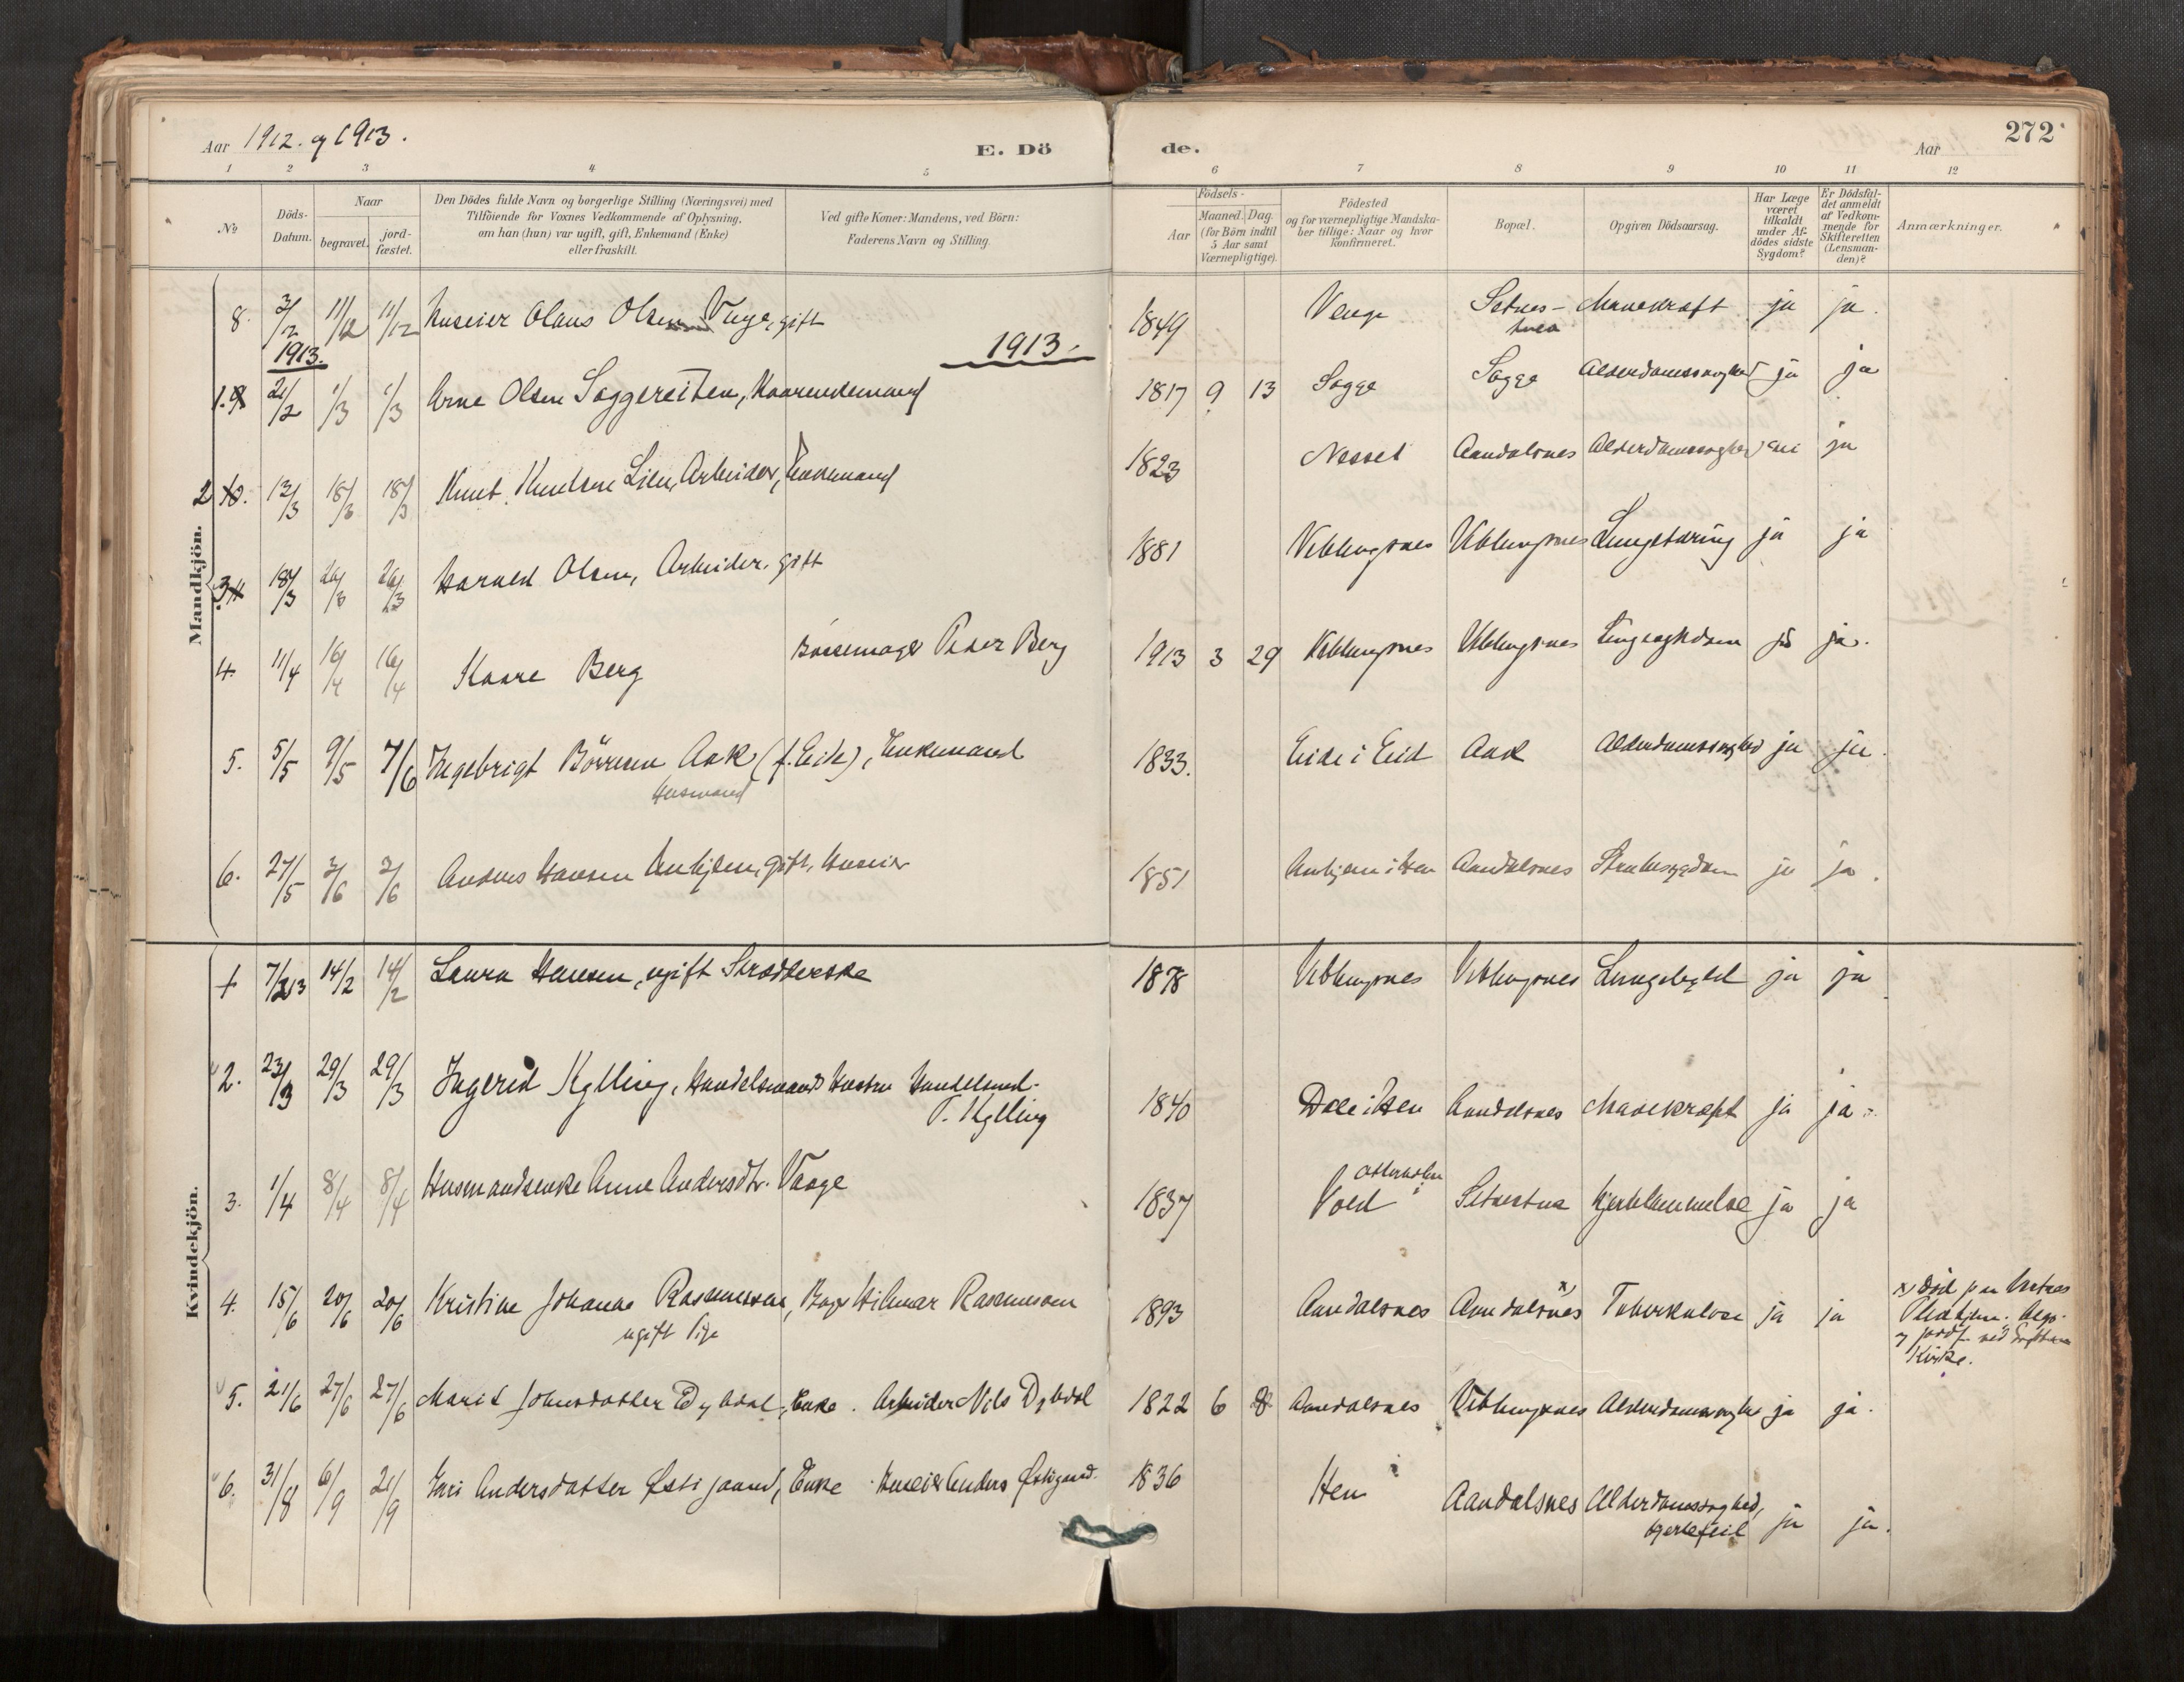 Aar 1912. og 1913.
E. Dö
de.
Aar
272
1 2 3 4 5 6 7 8 9 10 11 12
No
Döds-
Datum.
Naar
begravet.
jord-
fæstet.
Den Dödes fulde Navn og borgerlige Stilling (Næringsvei) med
Tilföiende for Voxnes Vedkommende af Oplysning,
om han (hun) var ugift, gift, Enkemand (Enke)
eller fraskilt.
Ved gifte Koner: Mandens, ved Börn:
Faderens Navn og Stilling.
Födsels-
Aar
Maaned. Dag.
(for Börn indtil
5 Aar samt
Værnepligtige).
Födested
og for værnepligtige Mandska-
ber tillige: Naar og hvor
konfirmeret.
Bopæl.
Opgiven Dödsaarsag.
Har Læge
været
tilkaldt
under Af-
dödes sidste
Sygdom?
Er Dödsfal-
det anmeldt
af Vedkom-
mende for
Skifteretten
(Lensman-
den)?
Anmærkninger.
Mandkjön.
8. 3/12 11/12 11/12 Huseier Olaus Olsen Venge, gift 1849 Venge Setnes- Mavekræft ja ja.
1913.
1913.
1. 21/2 1/3 1/3 Arne Olsen Soggereiten, Kaarendemand 1817 9 13 Sogge Sogge Alderdomssvaghed ja ja
2 10. 12/3 18/3 18/3 Knut Knutsen Lien, Arbeider, Enkemand 1823 Nesset Aandalsnes Alderdomssvaghed nei ja
3. 18/3 26/3 26/3 Harald Olsen, Arbeider. gift 1881 Veblungsnes Veblungsnes Lungetæring ja ja
4. 11/4 16/4 16/4 Kaare Berg Bössemager Peder Berg 1913 3 29 Veblungsnes Veblungsnes Lungesygdom ja ja.
5. 5/5 9/5 7/6 Ingebrigt Börresen Aak (f. Eide), Enkemand 1833. Eide i Eid Aak Alderdomssvaghed ja ja.
Husmand
6. 27/5 3/6 3/6 Anders Hansen Unhjem, gift, Huseier 1851 Unhjem i Hen Aandalsnes Strubesygdom ja ja.
Kvindekjön.
1 7/2 13 14/2 14/2 Laura Hansen, ugift Skrædderske 1878 Veblungsnes Veblungsnes ja ja
2. 23/3 29/3 29/3 Ingerid Kylling, Handelsmands Hustru Handelsmd. 1840 Dale i Hen Aandalsnes Mavekræft ja ja.
T. Kylling
3. 1/4 8/4 8/4 Husmandsenke Anne Andersdtr. Vaage 1837 Vold Setnestua Hjertelammelse ja ja
4. 15/6 20/6 20/6 Kristine Johanne Rasmussen, Bager Hilmar Rasmussen 1893 Aandalsnes Aandalsnes x) Tuberkulose ja ja
ugift Pige
x) död paa
Pleiehjem. Begr.
og jordf. ved Grytten
Kirke.
5. 21/6 27/6 27/6 Marit Johnsdatter Dybdal, Enke. Arbeider Nils Dybdal 1822 6 8 Aandalsnes Veblungsnes Alderdomssvaghed ja ja.
6. 31/8 6/9 21/9 Guri Andersdatter Östigaard, Enke Huseier Anders Östigaard. 1836 Hen Aandalsnes Alderdomssvaghed,
hjertefeil ja ja.